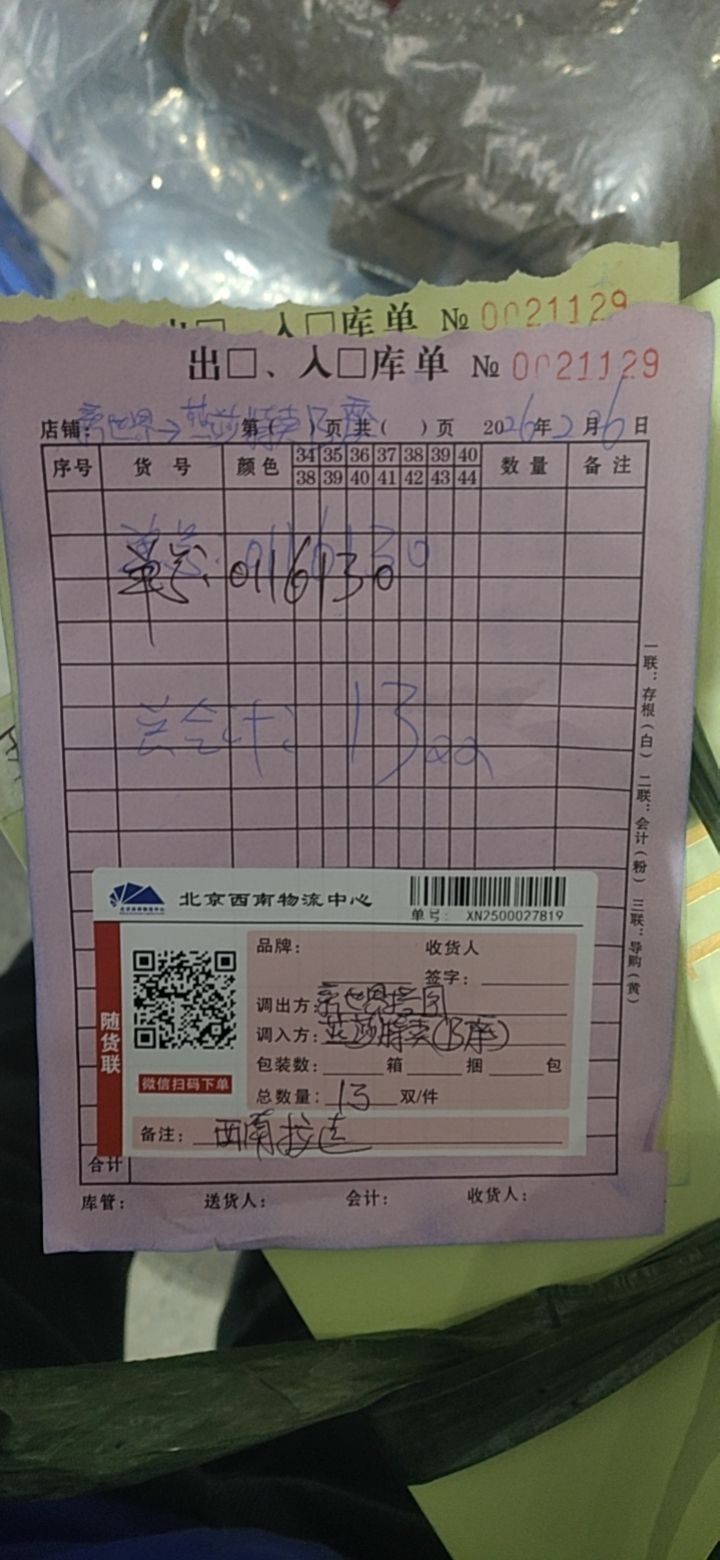 出□、入□库单 № 0021129
出□、入□库单 № 0021129
店铺: 新世界→燕莎特卖B座 第( )页 共( )页 2026年2月6日
序号 货号 颜色 34 35 36 37 38 39 40 数量 备注
38 39 40 41 42 43 44
单号: 0116130
单号: 0116130
总合计: 13
一联:存根(白) 二联:会计(粉) 三联:导购(黄)
北京西南物流中心
单号: XN2500027819
随货联
微信扫码下单
品牌: 收货人
签字:
调出方: 新世界
调入方: 燕莎特卖(B座)
包装数: 箱 捆 包
总数量: 13 双/件
备注: 西南接送
合计
库管: 送货人: 会计: 收货人: